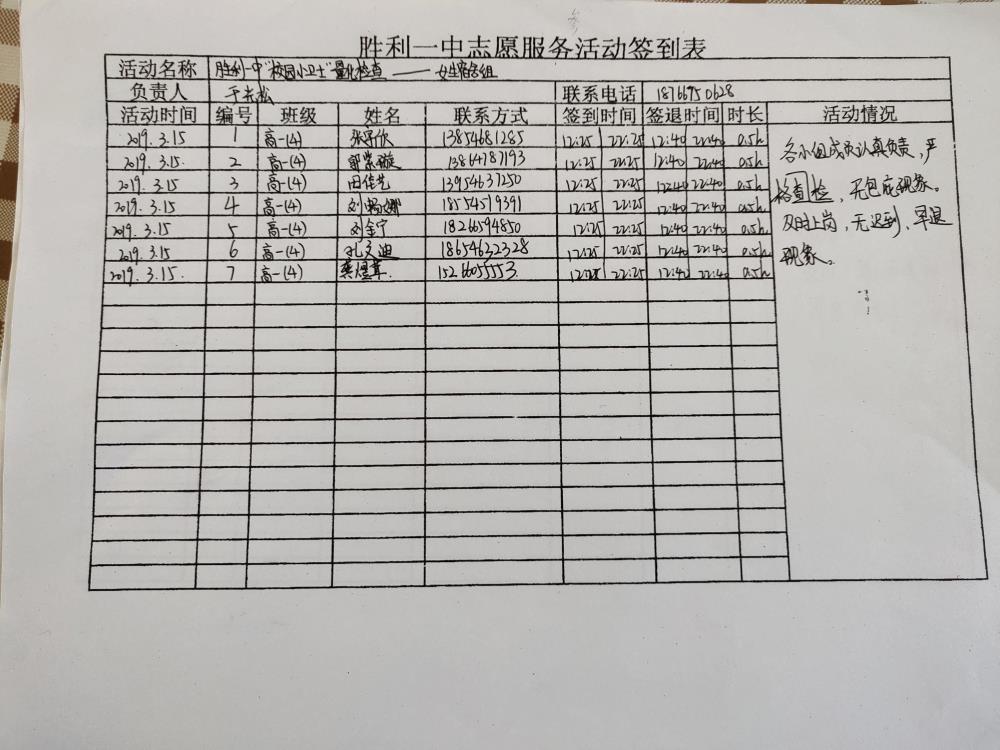 胜利一中志愿服务活动签到表
活动名称 胜利一中"校园小卫士"量化检查——女生宿舍组
负责人 于长松 联系电话 18766750628
活动时间 编号 班级 姓名 联系方式 签到时间 签退时间 时长 活动情况
2019.3.15 1 高一(4) 13854681285 12:25 22:25 12:40 22:40 0.5h
2019.3.15. 2 高一(4) 13864787193 12:25 22:25 12:40 22:40 0.5h
2019.3.15 3 高一(4) 田佳艺 13954637250 12:25 22:25 12:40 22:40 0.5h
2019.3.15 4 高一(4) 刘娜 18554519391 12:25 22:25 12:40 22:40 0.5h
2019.3.15. 5 高一(4) 刘金宁 18266594850 12:25 22:25 12:40 22:40 0.5h
2019.3.15 6 高一(4) 孔文迪 18654632328 12:25 22:25 12:40 22:40 0.5h
2019.3.15. 7 高一(4) 龚煜 15266055553. 12:25 22:25 12:40 22:40 0.5h
各小组成员认真负责,严
格查检,无包庇现象。
及时上岗,无迟到,早退
现象。